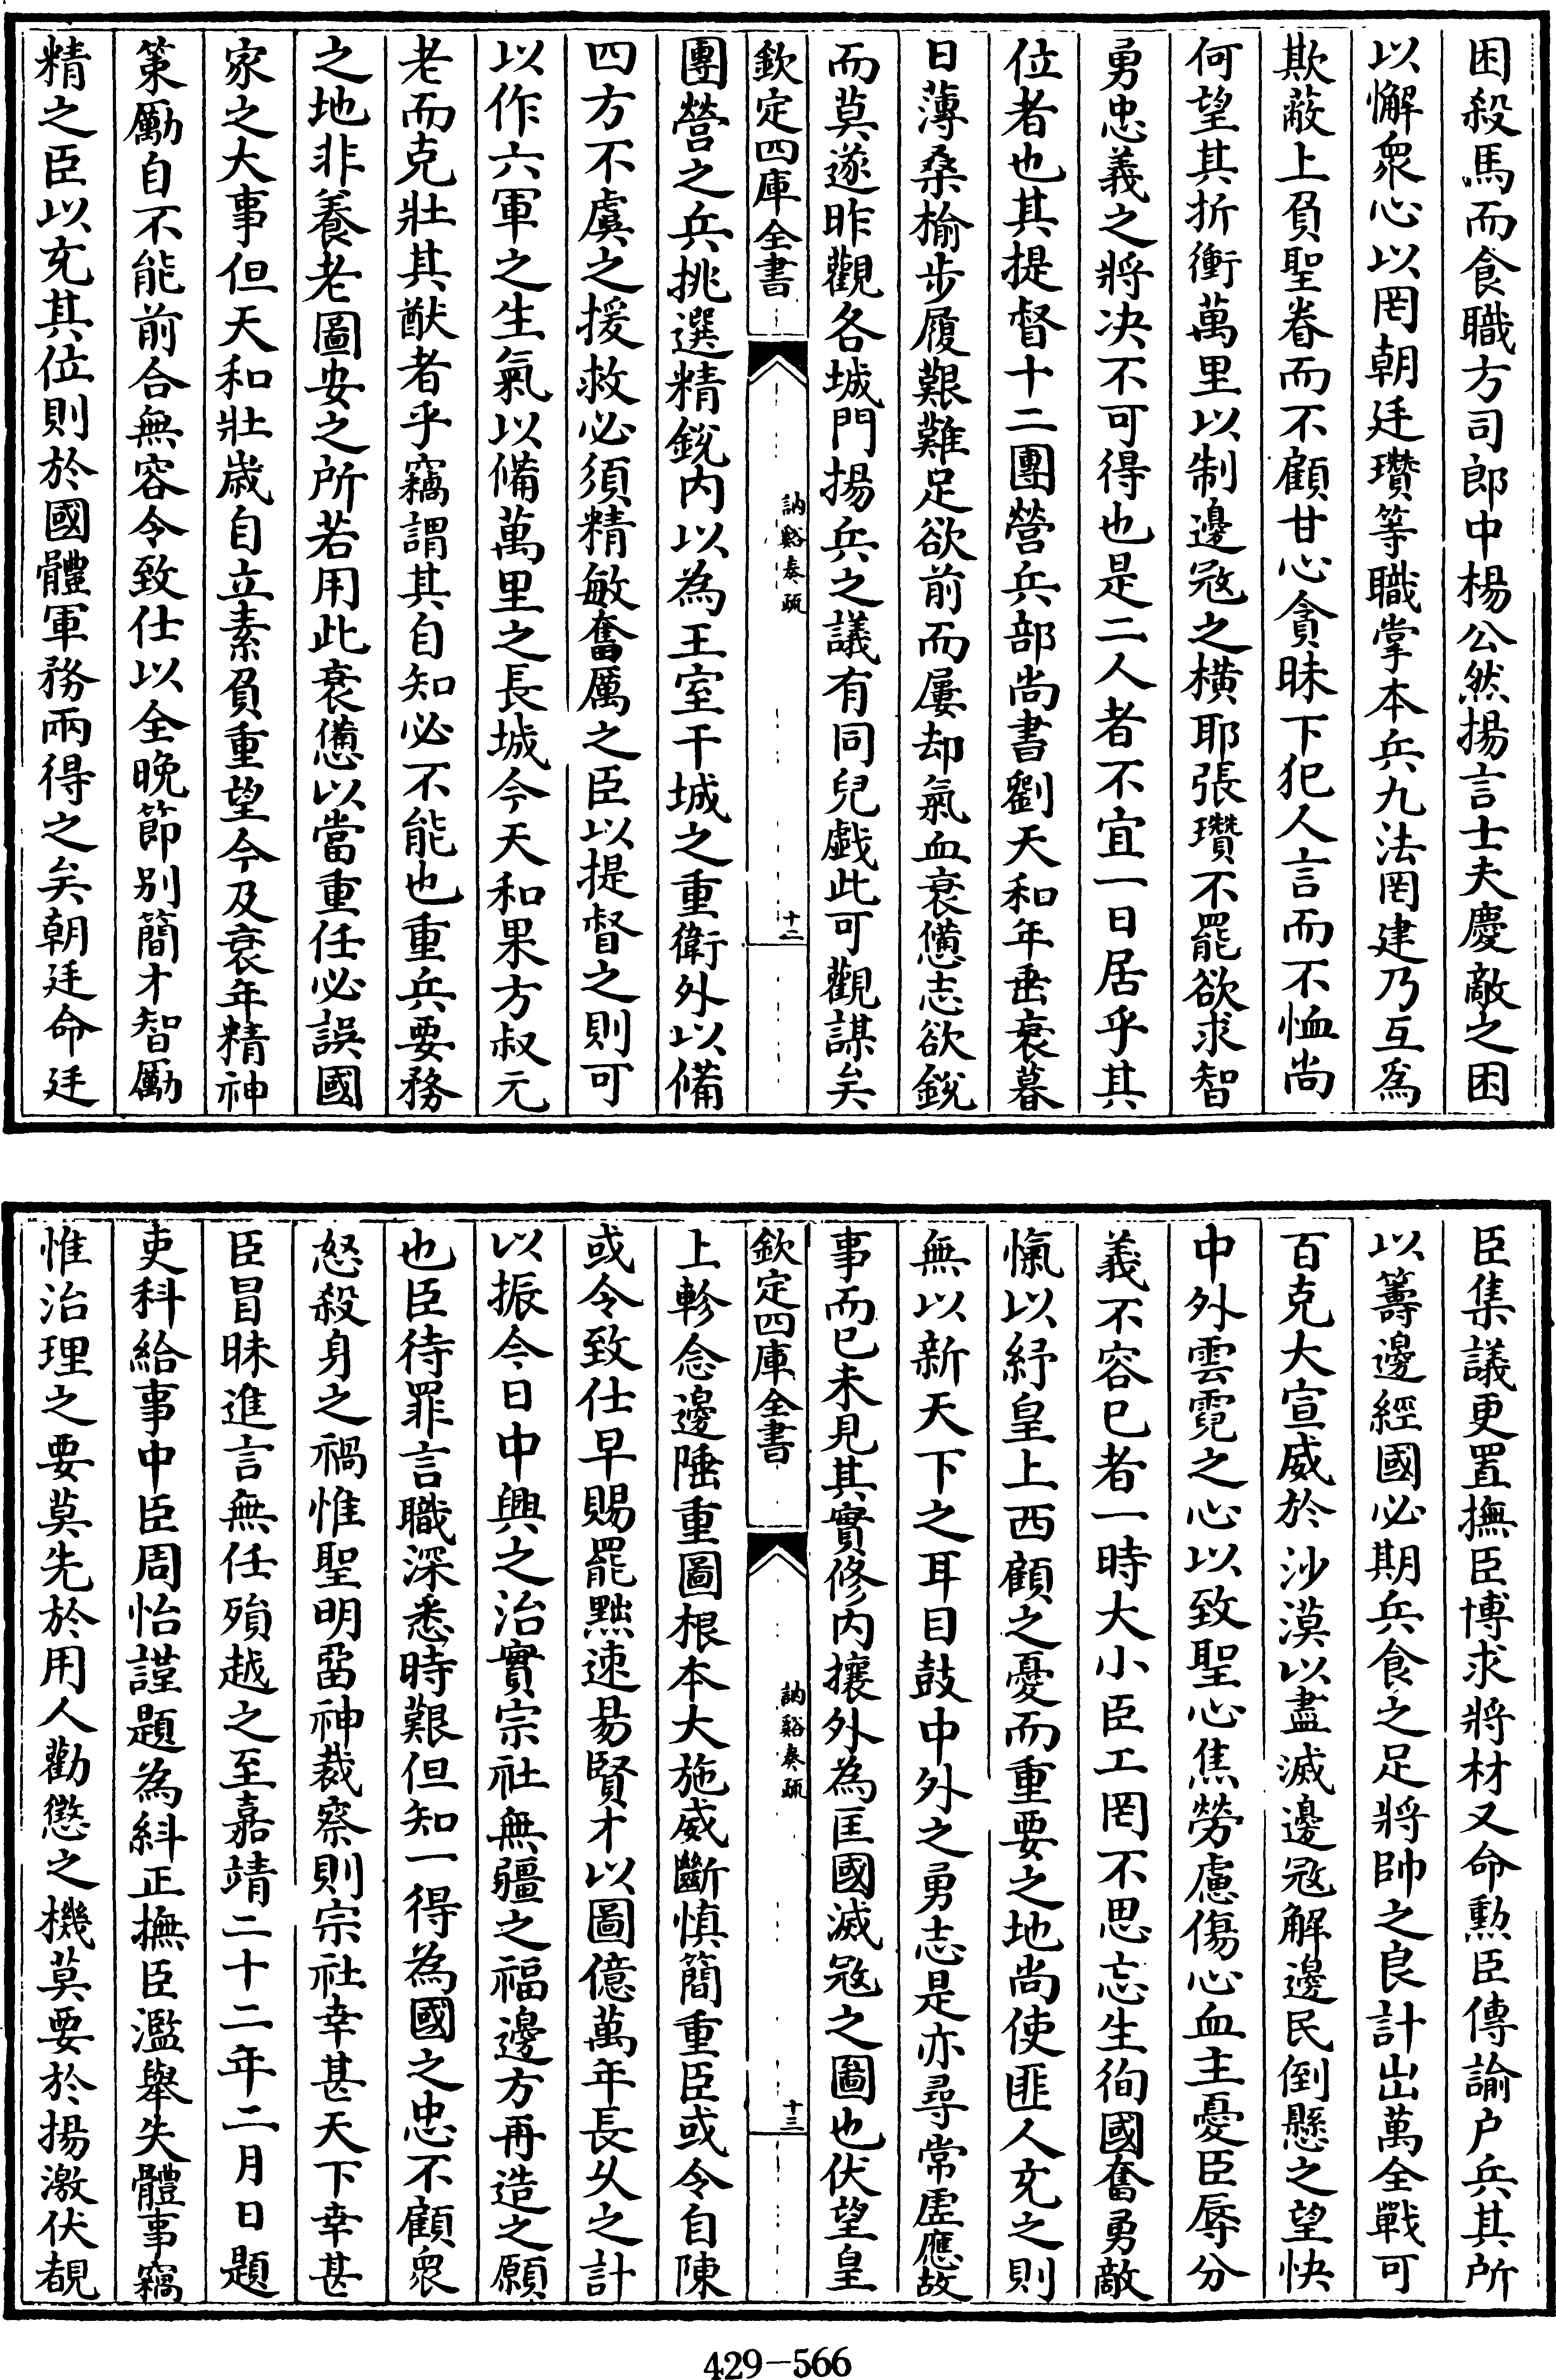 困殺馬而食職方司郎中楊公然揚言士夫慶敵之困
以懈衆心以罔朝廷瓚等職掌本兵九法罔建乃互爲
欺蔽上負聖眷而不顧甘心貪昧下犯人言而不恤尚
何望其折衝萬里以制邊冦之橫耶張瓚不罷欲求智
勇忠義之將决不可得也是二人者不宜一日居乎其
位者也其提督十二團營兵部尚書劉天和年垂衰暮
日薄桑榆步履艱難足欲前而屢却氣血衰憊志欲銳
而莫遂昨觀各城門揚兵之議有同兒戯此可觀謀矣
欽定四庫全書
訥谿奏疏
十二
團營之兵挑選精銳内以為王室干城之重衛外以備
四方不虞之援救必須精敏奮厲之臣以提督之則可
以作六軍之生氣以備萬里之長城今天和果方叔元
老而克壯其猷者乎竊謂其自知必不能也重兵要務
之地非養老圖安之所若用此衰憊以當重任必誤國
家之大事但天和壯歳自立素負重望今及衰年精神
策勵自不能前合無容令致仕以全晚節别簡才智勵
精之臣以充其位則於國體軍務兩得之矣朝廷命廷
臣集議更置撫臣博求將材又命勲臣傳諭户兵其所
以籌邊經國必期兵食之足將帥之良計出萬全戰可
百克大宣威於沙漠以盡滅邊冦解邊民倒懸之望快
中外雲霓之心以致聖心焦勞慮傷心血主憂臣辱分
義不容已者一時大小臣工罔不思忘生徇國奮勇敵
愾以紓皇上西顧之憂而重要之地尚使匪人充之則
無以新天下之耳目鼓中外之勇志是亦尋常虚應故
事而已未見其實修内攘外為匡國滅冦之圖也伏望皇
欽定四庫全書
訥谿奏疏
十三
上軫念邊陲重圖根本大施威斷慎簡重臣或令自陳
或令致仕早賜罷黜速易賢才以圖億萬年長久之計
以振今日中興之治實宗社無疆之福邊方再造之願
也臣待罪言職深悉時艱但知一得為國之忠不顧衆
怒殺身之禍惟聖明畱神裁察則宗社幸甚天下幸甚
臣冒昧進言無任殞越之至嘉靖二十二年二月日題
吏科給事中臣周怡謹題為糾正撫臣濫舉失體事竊
惟治理之要莫先於用人勸懲之機莫要於揚激伏覩
429-566